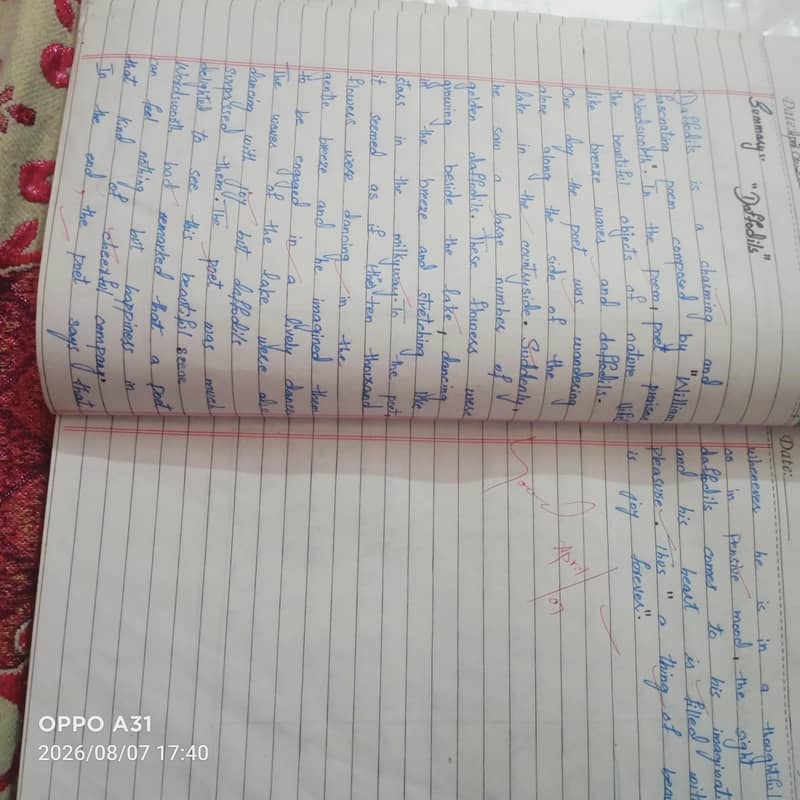 Summary:- "Daffodils"
Daffodils is a charming and
fascinating poem composed by "William
Wordsworth". In the poem, poet praises
the beautiful objects of nature
like breeze waves and daffodils.
One day the poet was wandering
alone along the side of the
lake in the countryside. Suddenly,
he saw a large number of
golden daffodils. These flowers were
growing beside the lake, dancing
in the breeze and stretching like
stars in the milkyway. To the poet,
it seemed as if the ten thousand
flowers were dancing in the
gentle breeze and he imagined them
to be engaged in a lively dance
The waves of the lake were also
dancing with joy but daffodils
surpassed them. The poet was much
delighted to see this beautiful scene
Wordsworth had remarked that a poet
can feel nothing but happiness in
that kind of cheerful company.
In the end, the poet says that
Date:
whenever he is in a thoughtful
or in pensive mood, the sight
daffodils comes to his
and his heart is filled
pleasure. Thus "a thing of
is joy forever".
Good
April/07
OPPO A31
2026/08/07 17:40